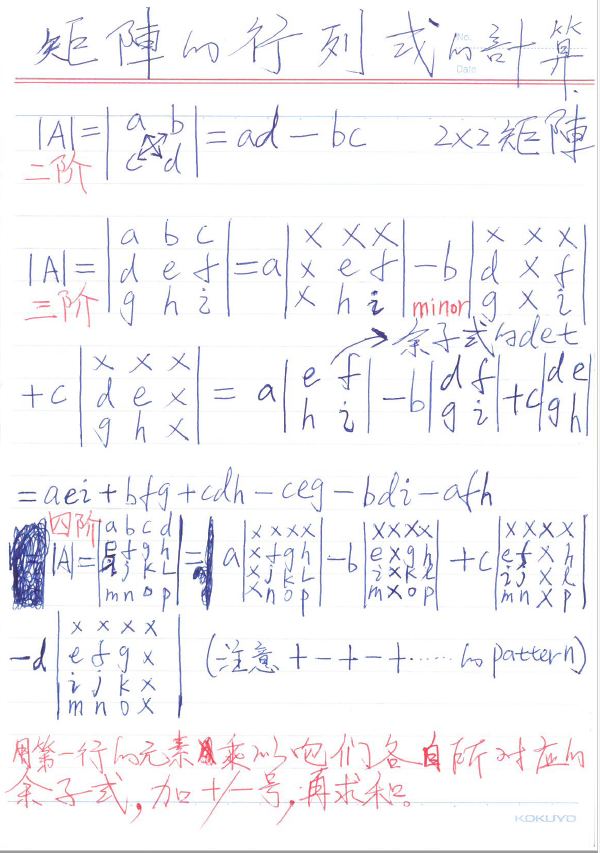 矩陣的行列式的計算
No.
Date
|A|=|a b c d|=ad-bc 2x2矩陣
二阶
|A|=|a b c d e f g h i|=a|x x x x e f x h i|-b|x x x d x f g x i|
三阶 minor
余子式的det
+c|x x x d e x g h x|=a|e f h i|-b|d f g i|+c|d e g h|
=aei+bfg+cdh-ceg-bdi-afh
四阶
|A|=|a b c d e f g h i j k L m n o p|=a|x x x x x f g h x j k L x n o p|-b|x x x x e x g h i x k L m x o p|+c|x x x x e f x h i j x L m n x p|
-d|x x x x e f g x i j k x m n o x| (注意+-+-+……的pattern)
用第一行的元素乘以它们各自所对应的
余子式,加+/-号,再求和。
KOKUYO